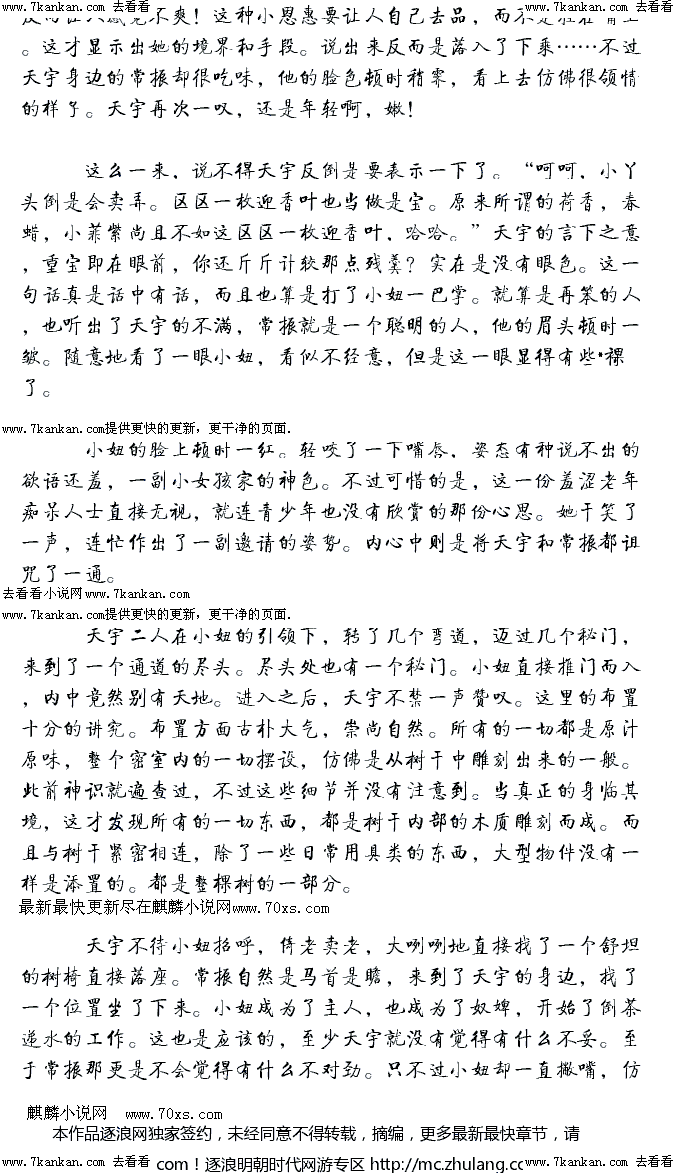 www.7kankan.com 去看看 www.7kankan.com 去看看 www.7kankan.com 去看看 www.7kankan.com 去看看
。这才显示出她的境界和手段。说出来反而是落入了下乘……不过
天宇身边的常振却很吃味，他的脸色顿时稍霁，看上去仿佛很领情
的样子。天宇再次一叹，还是年轻啊，嫩！
这么一来，说不得天宇反倒是要表示一下了。“呵呵，小丫
头倒是会卖弄。区区一枚迎香叶也当做是宝。原来所谓的荷香，春
蜡，小菲紫尚且不如这区区一枚迎香叶，哈哈。”天宇的言下之意
，重宝即在眼前，你还斤斤计较那点残羹？实在是没有眼色。这一
句话真是话中有话，而且也算是打了小妞一巴掌。就算是再笨的人
，也听出了天宇的不满，常振就是一个聪明的人，他的眉头顿时一
皱。随意地看了一眼小妞，看似不经意，但是这一眼显得有些·裸
了。
www.7kankan.com提供更快的更新，更干净的页面.
小妞的脸上顿时一红。轻咬了一下嘴唇，姿态有种说不出的
欲语还羞，一副小女孩家的神色。不过可惜的是，这一份羞涩老年
痴呆人士直接无视，就连青少年也没有欣赏的那份心思。她干笑了
一声，连忙作出了一副邀请的姿势。内心中则是将天宇和常振都诅
咒了一通。
去看看小说网www.7kankan.com
www.7kankan.com提供更快的更新，更干净的页面.
天宇二人在小妞的引领下，转了几个弯道，迈过几个秘门，
来到了一个通道的尽头。尽头处也有一个秘门。小妞直接推门而入
，内中竟然别有天地。进入之后，天宇不禁一声赞叹。这里的布置
十分的讲究。布置方面古朴大气，崇尚自然。所有的一切都是原汁
原味，整个密室内的一切摆设，仿佛是从树干中雕刻出来的一般。
此前神识就遍查过，不过这些细节并没有注意到。当真正的身临其
境，这才发现所有的一切东西，都是树干内部的木质雕刻而成。而
且与树干紧密相连，除了一些日常用具类的东西，大型物件没有一
样是添置的。都是整棵树的一部分。
最新最快更新尽在麒麟小说网www.70xs.com
天宇不待小妞招呼，倚老卖老，大咧咧地直接找了一个舒坦
的树椅直接落座。常振自然是马首是瞻，来到了天宇的身边，找了
一个位置坐了下来。小妞成为了主人，也成为了奴婢，开始了倒茶
递水的工作。这也是应该的，至少天宇就没有觉得有什么不妥。至
于常振那更是不会觉得有什么不对劲。只不过小妞却一直撇嘴，仿
麒麟小说网 www.70xs.com
本作品逐浪网独家签约，未经同意不得转载，摘编，更多最新最快章节，请
www.7kankan.com 去看看 com！逐浪明朝时代网游专区 http://mc.zhulang.co www.7kankan.com 去看看